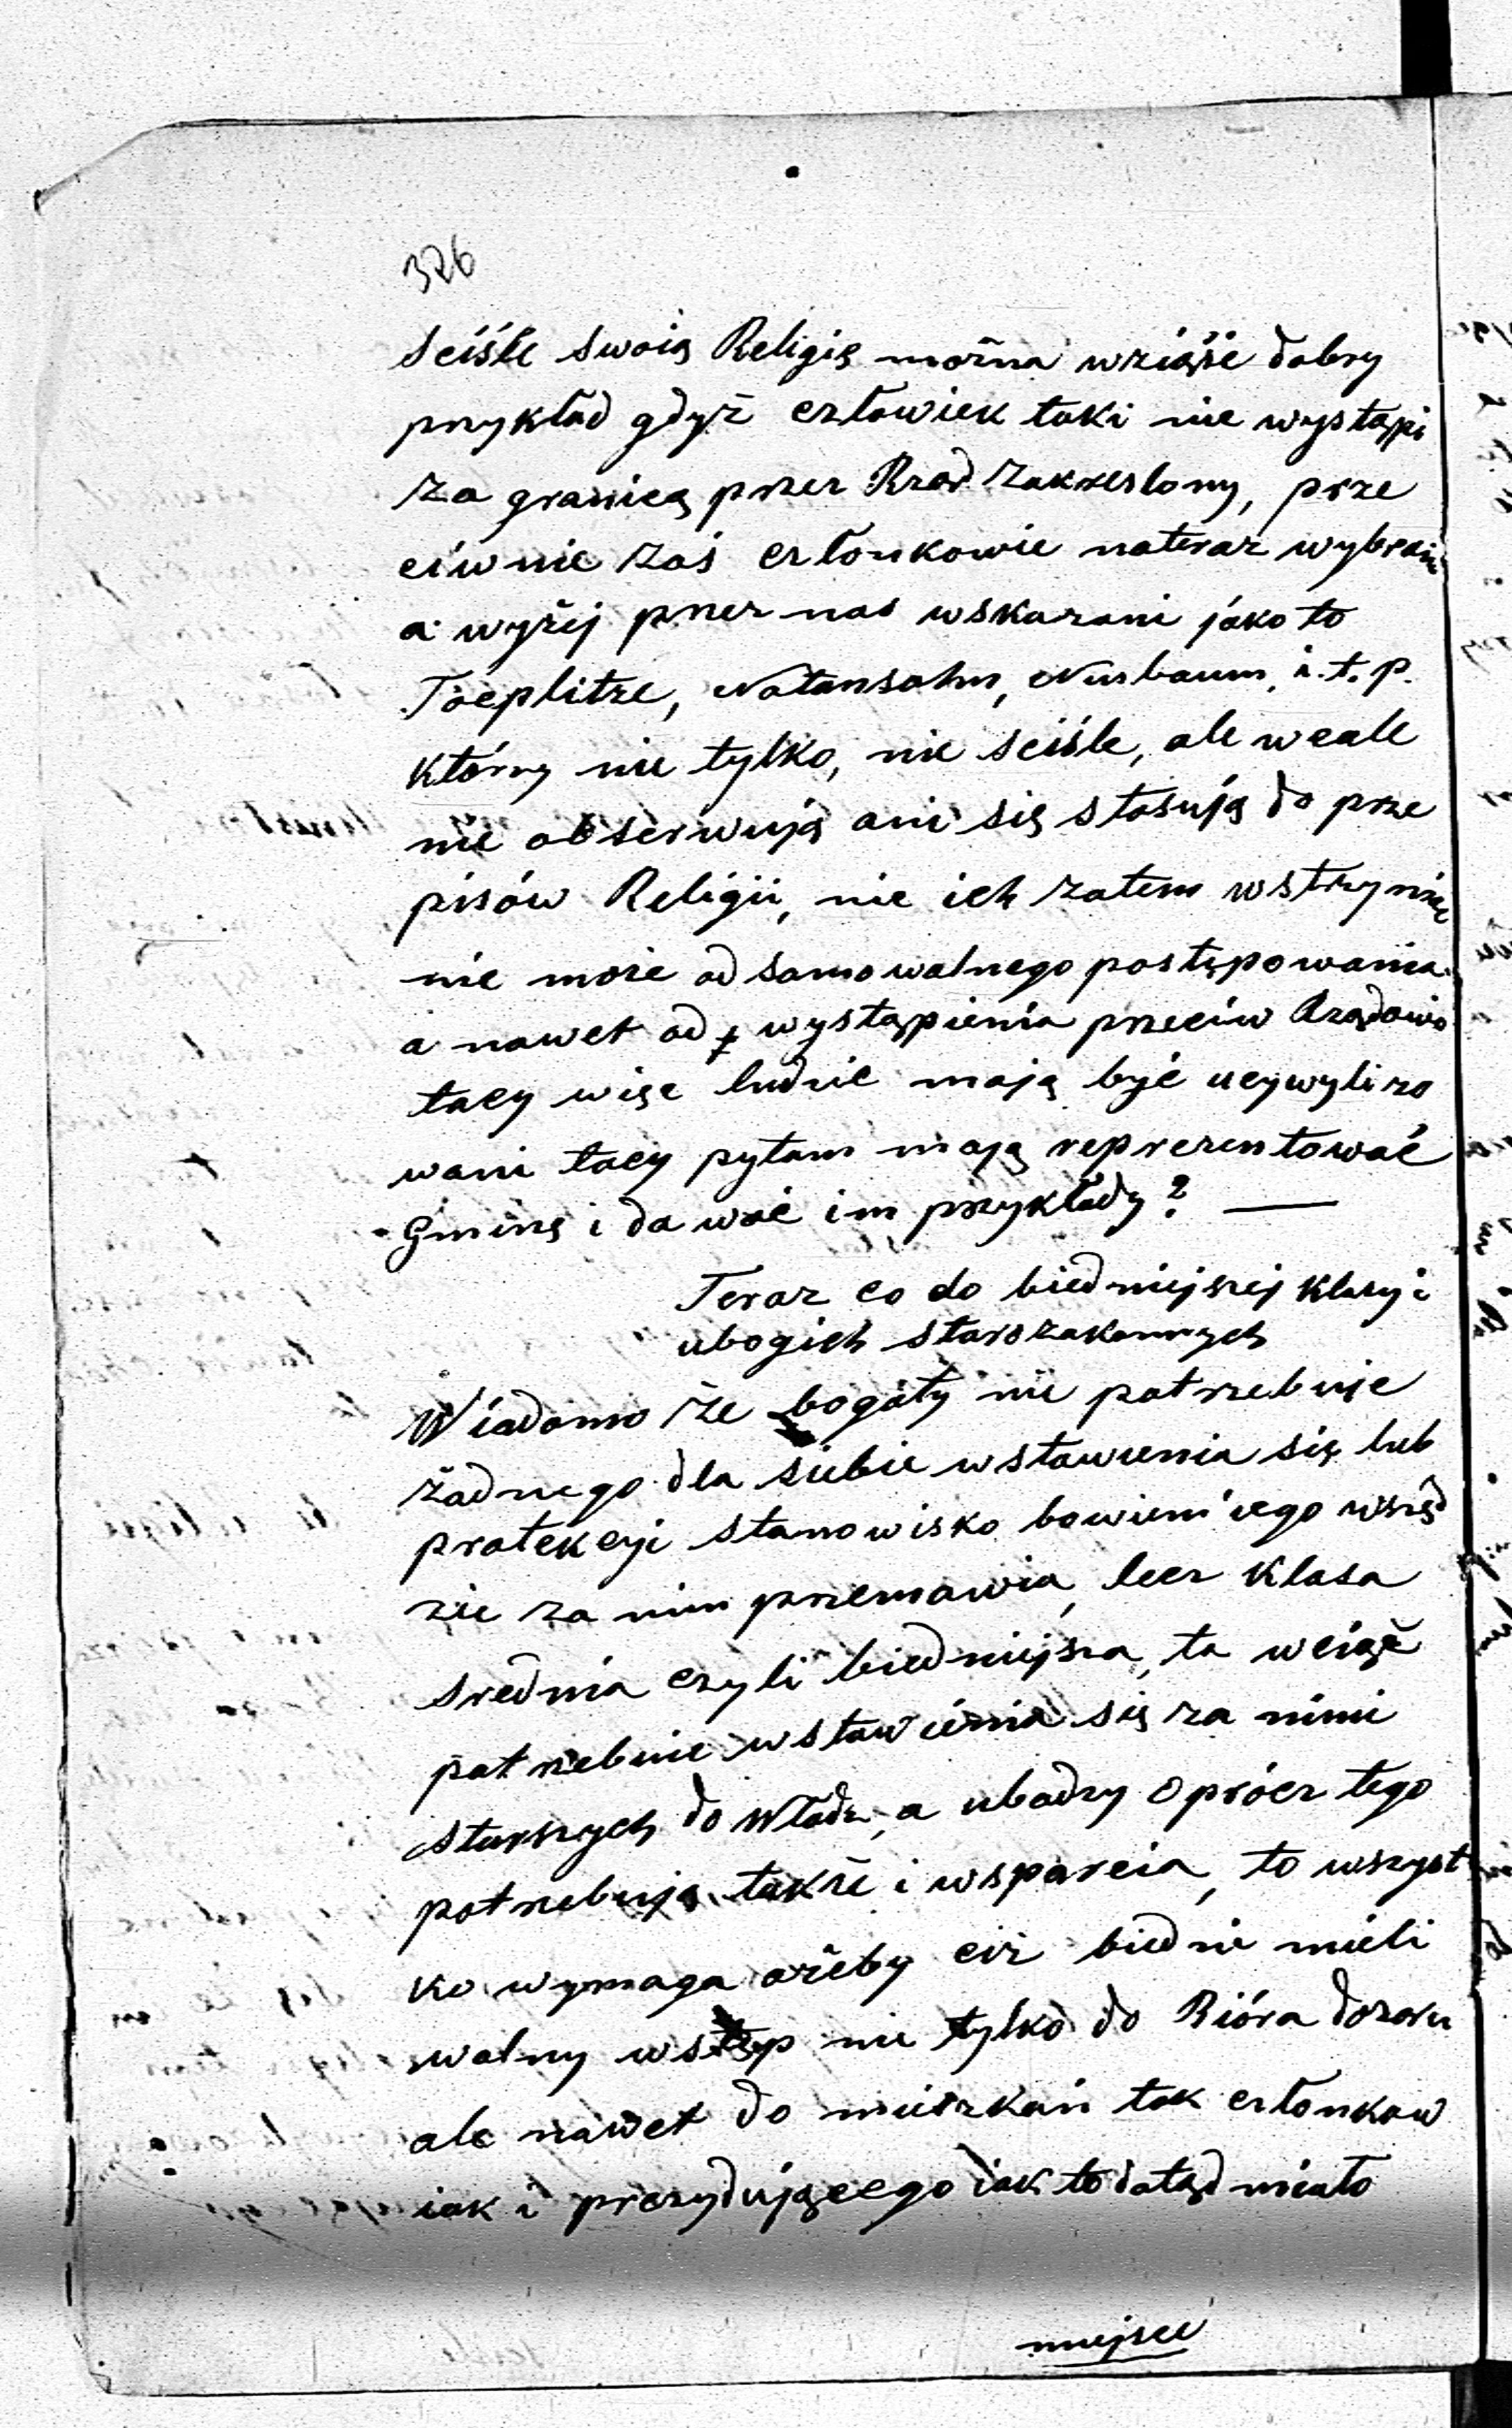 326
sciśle swoią Religię można wziąść dobry
przykład gdyż człowiek taki nie wystąpi
za granicę przez Rząd zakreslony, prze
ciwnie zaś członkowie nateraz wybrani
a wyżéj przez nas wskazani jako to
Toeplitze, Natansohn, Nusbaum, i. t. p.
którzy nie tylko, nie sciśle, ale wcale
nie obserwują ani się stosują do prze
pisów Religii, nic ich zatem wstrzymać
nie może od samowolnego postępowania
a nawet od wystąpienia przeciw Rządowi
tacy więc ludzie mają być ucywylizo
wani tacy pytam mają reprezentować
Gminę i dawać im przykłady? —
Teraz co do biedniejszej klassy i
ubogich starozakonnych
Wiadomo że bogaty nie potrzebuje
żadnego dla siebie wstawienia się lub
protekcyi stanowisko bowiem iego wszęd
zie za nim przemawia, lecz klasa
srednia czyli biedniejsza, ta wciąż
potrzebuie wstawienia się za nimi
starszych do Władz, a ubodzy oprócz tego
potrzebują także i wsparcia, to wszyst
ko wymaga ażeby ciż biedni mieli
wolny wstęp nie tylko do Bióra dozoru
ale nawet do mieszkań tak członkow
iak i prezydującego iak to dotąd miało
miejsce